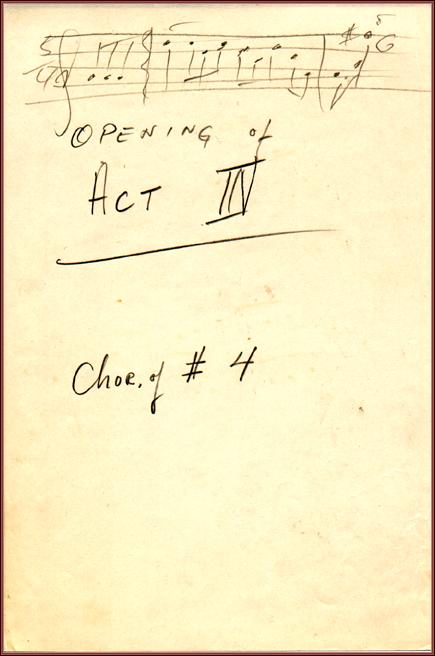 5
4
G
OPENING of
ACT IV
Chor. of # 4